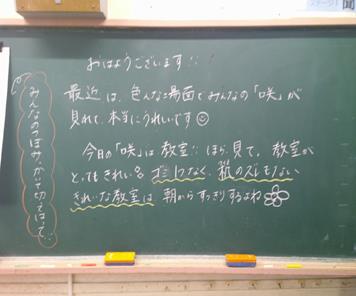 おはようございます!!
最近は、色んな場面でみんなの「咲」が
見れて、本当にうれしいです
今日の「咲」は教室!! ほら、見て。教室が
とってもきれい。ゴミはなく、紙のズレもない
きれいな教室は 朝からすっきりするよね
みんなのつぼみ